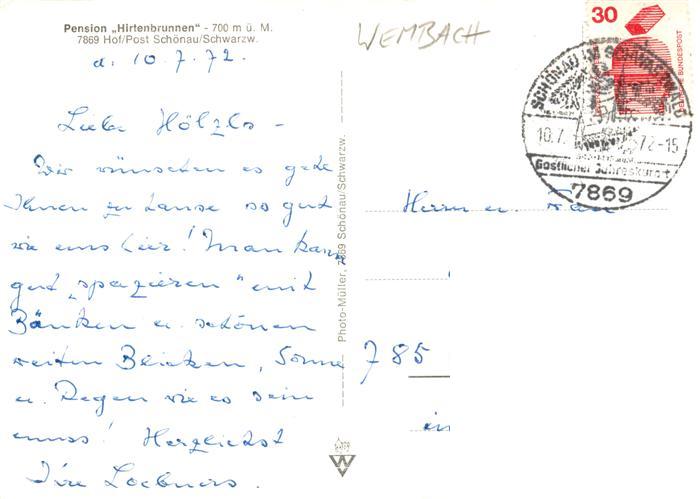 Pension „Hirtenbrunnen" - 700 m ü. M.
7869 Hof/Post Schönau/Schwarzw.
d. 10.7.72.
Liebe Hölzls -
Wir wünschen es geht
Ihnen zu Hause so gut
wie uns hier! Man kann
gut „spazieren" mit
Bänken u. schönen
weiten Blicken, Sonne
u. Regen wie es sein
muss! Herzlichst
Ihre Loebners.
Photo-Müller, 7869 Schönau/Schwarzw.
WEMBACH
30
DEUTSCHE BUNDESPOST
SCHÖNAU IM SCHWARZWALD
10.7. 72-15
Gastlicher Jahreskurort
7869
Herrn u. Frau
785
in